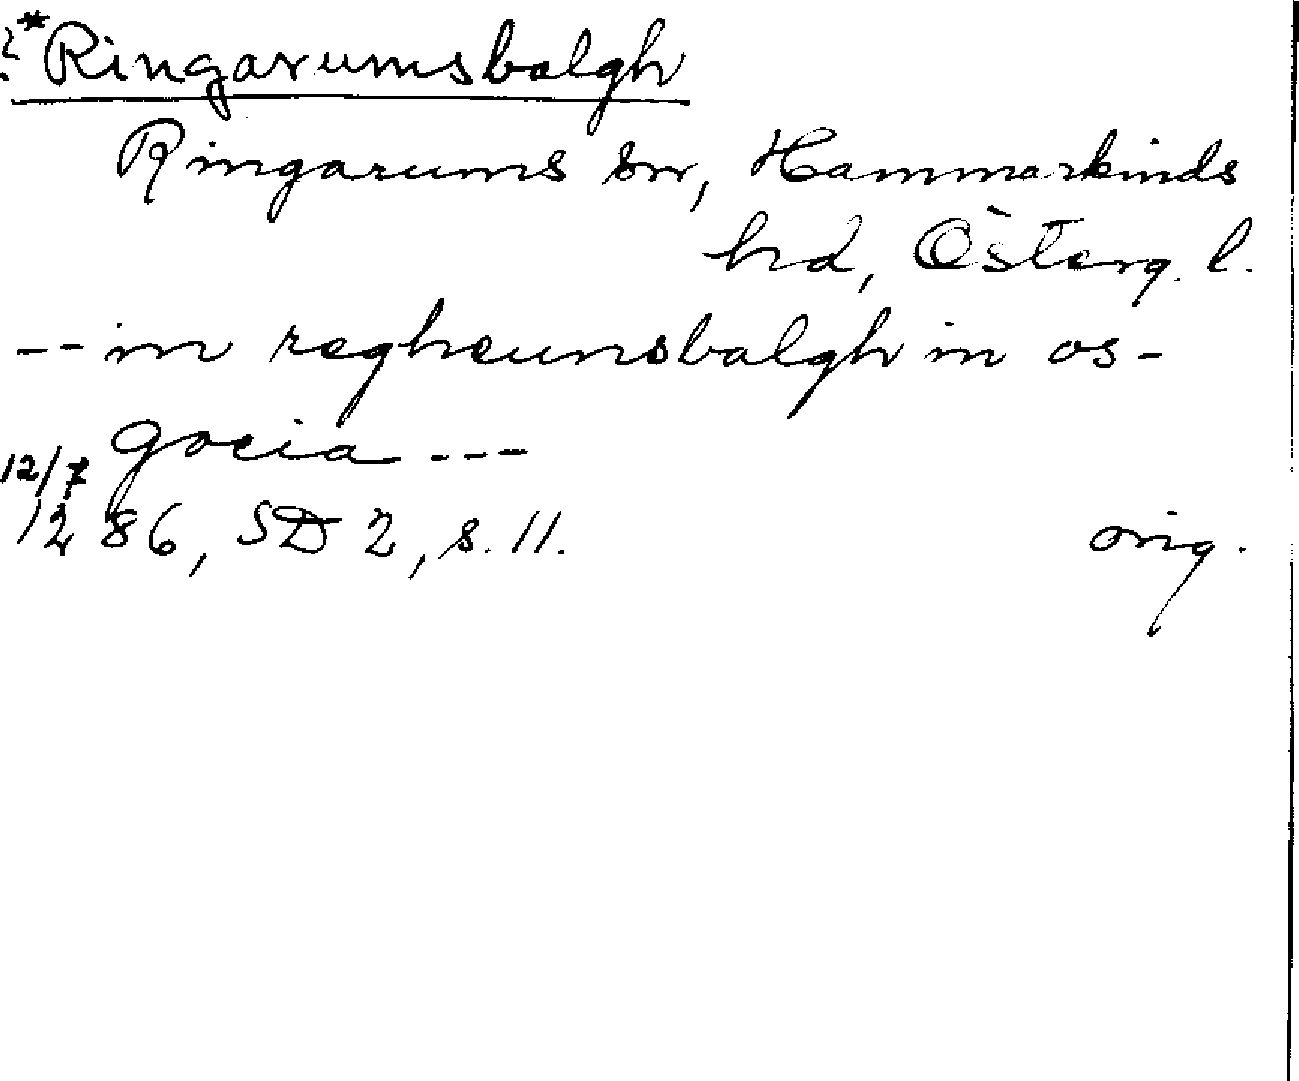 ?*Ringarumsbalgh
Ringarums sn, Hammarkinds
hd, Österg. l.
-- in regheunsbalgh in os-
gocia ---
12/7
1286, SD 2, s. 11. orig.